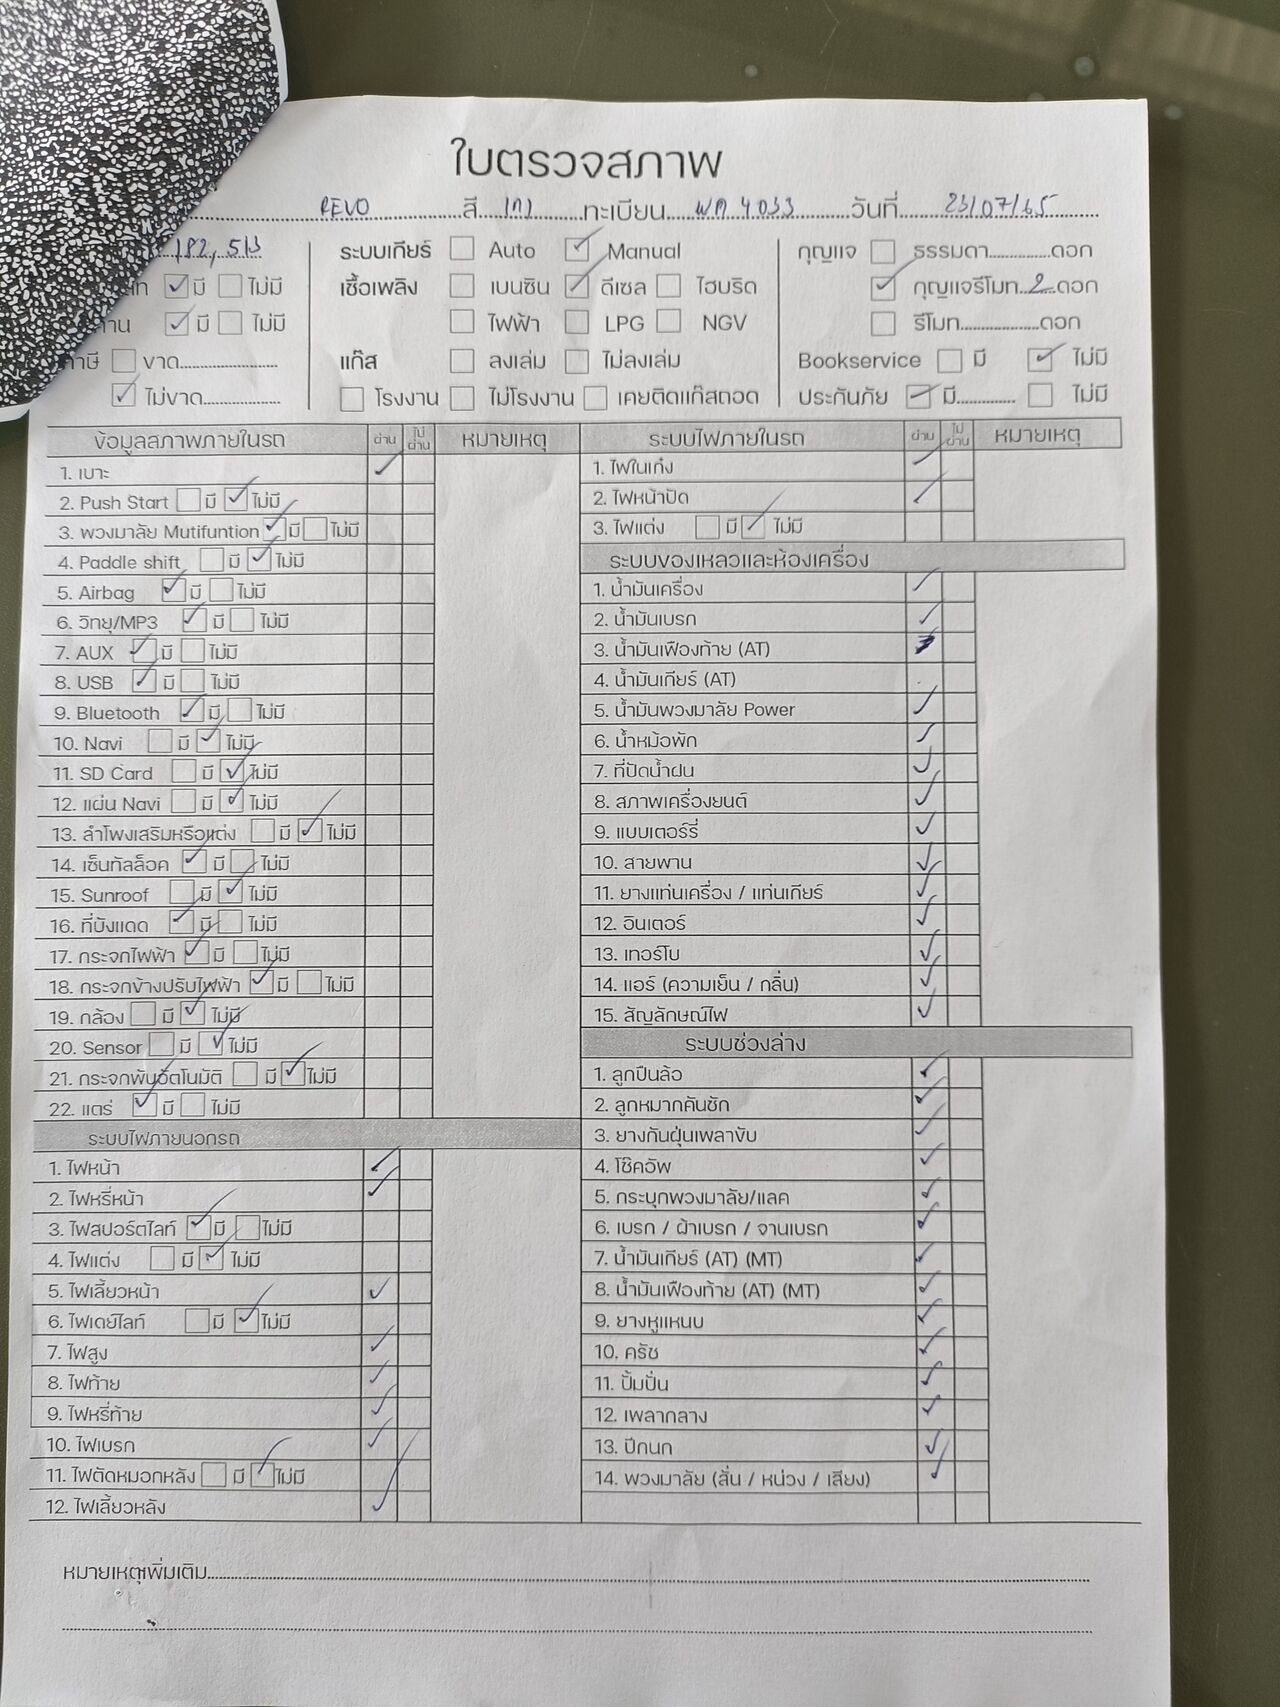 ใบตรวจสภาพ
REVO สี เทา ทะเบียน 4033 วันที่ 23/07/65
182,513 ระบบเกียร์ Auto Manual กุญแจ ธรรมดา ดอก
มี ไม่มี เชื้อเพลิง เบนซิน ดีเซล ไฮบริด กุญแจรีโมท 2 ดอก
มี ไม่มี ไฟฟ้า LPG NGV รีโมท ดอก
ขาด แก๊ส ลงเล่ม ไม่ลงเล่ม Bookservice มี ไม่มี
ไม่ขาด โรงงาน ไม่โรงงาน เคยติดแก๊สถอด ประกันภัย มี ไม่มี
ข้อมูลสภาพภายในรถ ผ่าน ไม่ผ่าน หมายเหตุ
1. เบาะ
2. Push Start มี ไม่มี
3. พวงมาลัย Mutifuntion มี ไม่มี
4. Paddle shift มี ไม่มี
5. Airbag มี ไม่มี
6. วิทยุ/MP3 มี ไม่มี
7. AUX มี ไม่มี
8. USB มี ไม่มี
9. Bluetooth มี ไม่มี
10. Navi มี ไม่มี
11. SD Card มี ไม่มี
12. แผ่น Navi มี ไม่มี
13. ลำโพงเสริมหรือแต่ง มี ไม่มี
14. เซ็นทัลล็อค มี ไม่มี
15. Sunroof มี ไม่มี
16. ที่บังแดด มี ไม่มี
17. กระจกไฟฟ้า มี ไม่มี
18. กระจกข้างปรับไฟฟ้า มี ไม่มี
19. กล้อง มี ไม่มี
20. Sensor มี ไม่มี
21. กระจกพับอัตโนมัติ มี ไม่มี
22. แตร่ มี ไม่มี
ระบบไฟภายนอกรถ
1. ไฟหน้า
2. ไฟหรี่หน้า
3. ไฟสปอร์ตไลท์ มี ไม่มี
4. ไฟแต่ง มี ไม่มี
5. ไฟเลี้ยวหน้า
6. ไฟเดย์ไลท์ มี ไม่มี
7. ไฟสูง
8. ไฟท้าย
9. ไฟหรี่ท้าย
10. ไฟเบรก
11. ไฟตัดหมอกหลัง มี ไม่มี
12. ไฟเลี้ยวหลัง
ระบบไฟภายในรถ ผ่าน ไม่ผ่าน หมายเหตุ
1. ไฟในเก๋ง
2. ไฟหน้าปัด
3. ไฟแต่ง มี ไม่มี
ระบบของเหลวและห้องเครื่อง
1. น้ำมันเครื่อง
2. น้ำมันเบรก
3. น้ำมันเฟืองท้าย (AT)
4. น้ำมันเกียร์ (AT)
5. น้ำมันพวงมาลัย Power
6. น้ำหม้อพัก
7. ที่ปัดน้ำฝน
8. สภาพเครื่องยนต์
9. แบบเตอร์รี่
10. สายพาน
11. ยางแท่นเครื่อง / แท่นเกียร์
12. อินเตอร์
13. เทอร์โบ
14. แอร์ (ความเย็น / กลิ่น)
15. สัญลักษณ์ไฟ
ระบบช่วงล่าง
1. ลูกปืนล้อ
2. ลูกหมากคันชัก
3. ยางกันฝุ่นเพลาขับ
4. โช๊คอัพ
5. กระบุกพวงมาลัย/แลค
6. เบรก / ผ้าเบรก / จานเบรก
7. น้ำมันเกียร์ (AT) (MT)
8. น้ำมันเฟืองท้าย (AT) (MT)
9. ยางหูแหนบ
10. ครัช
11. ปั้มปั่น
12. เพลากลาง
13. ปีกนก
14. พวงมาลัย (สั่น / หน่วง / เสียง)
หมายเหตุเพิ่มเติม